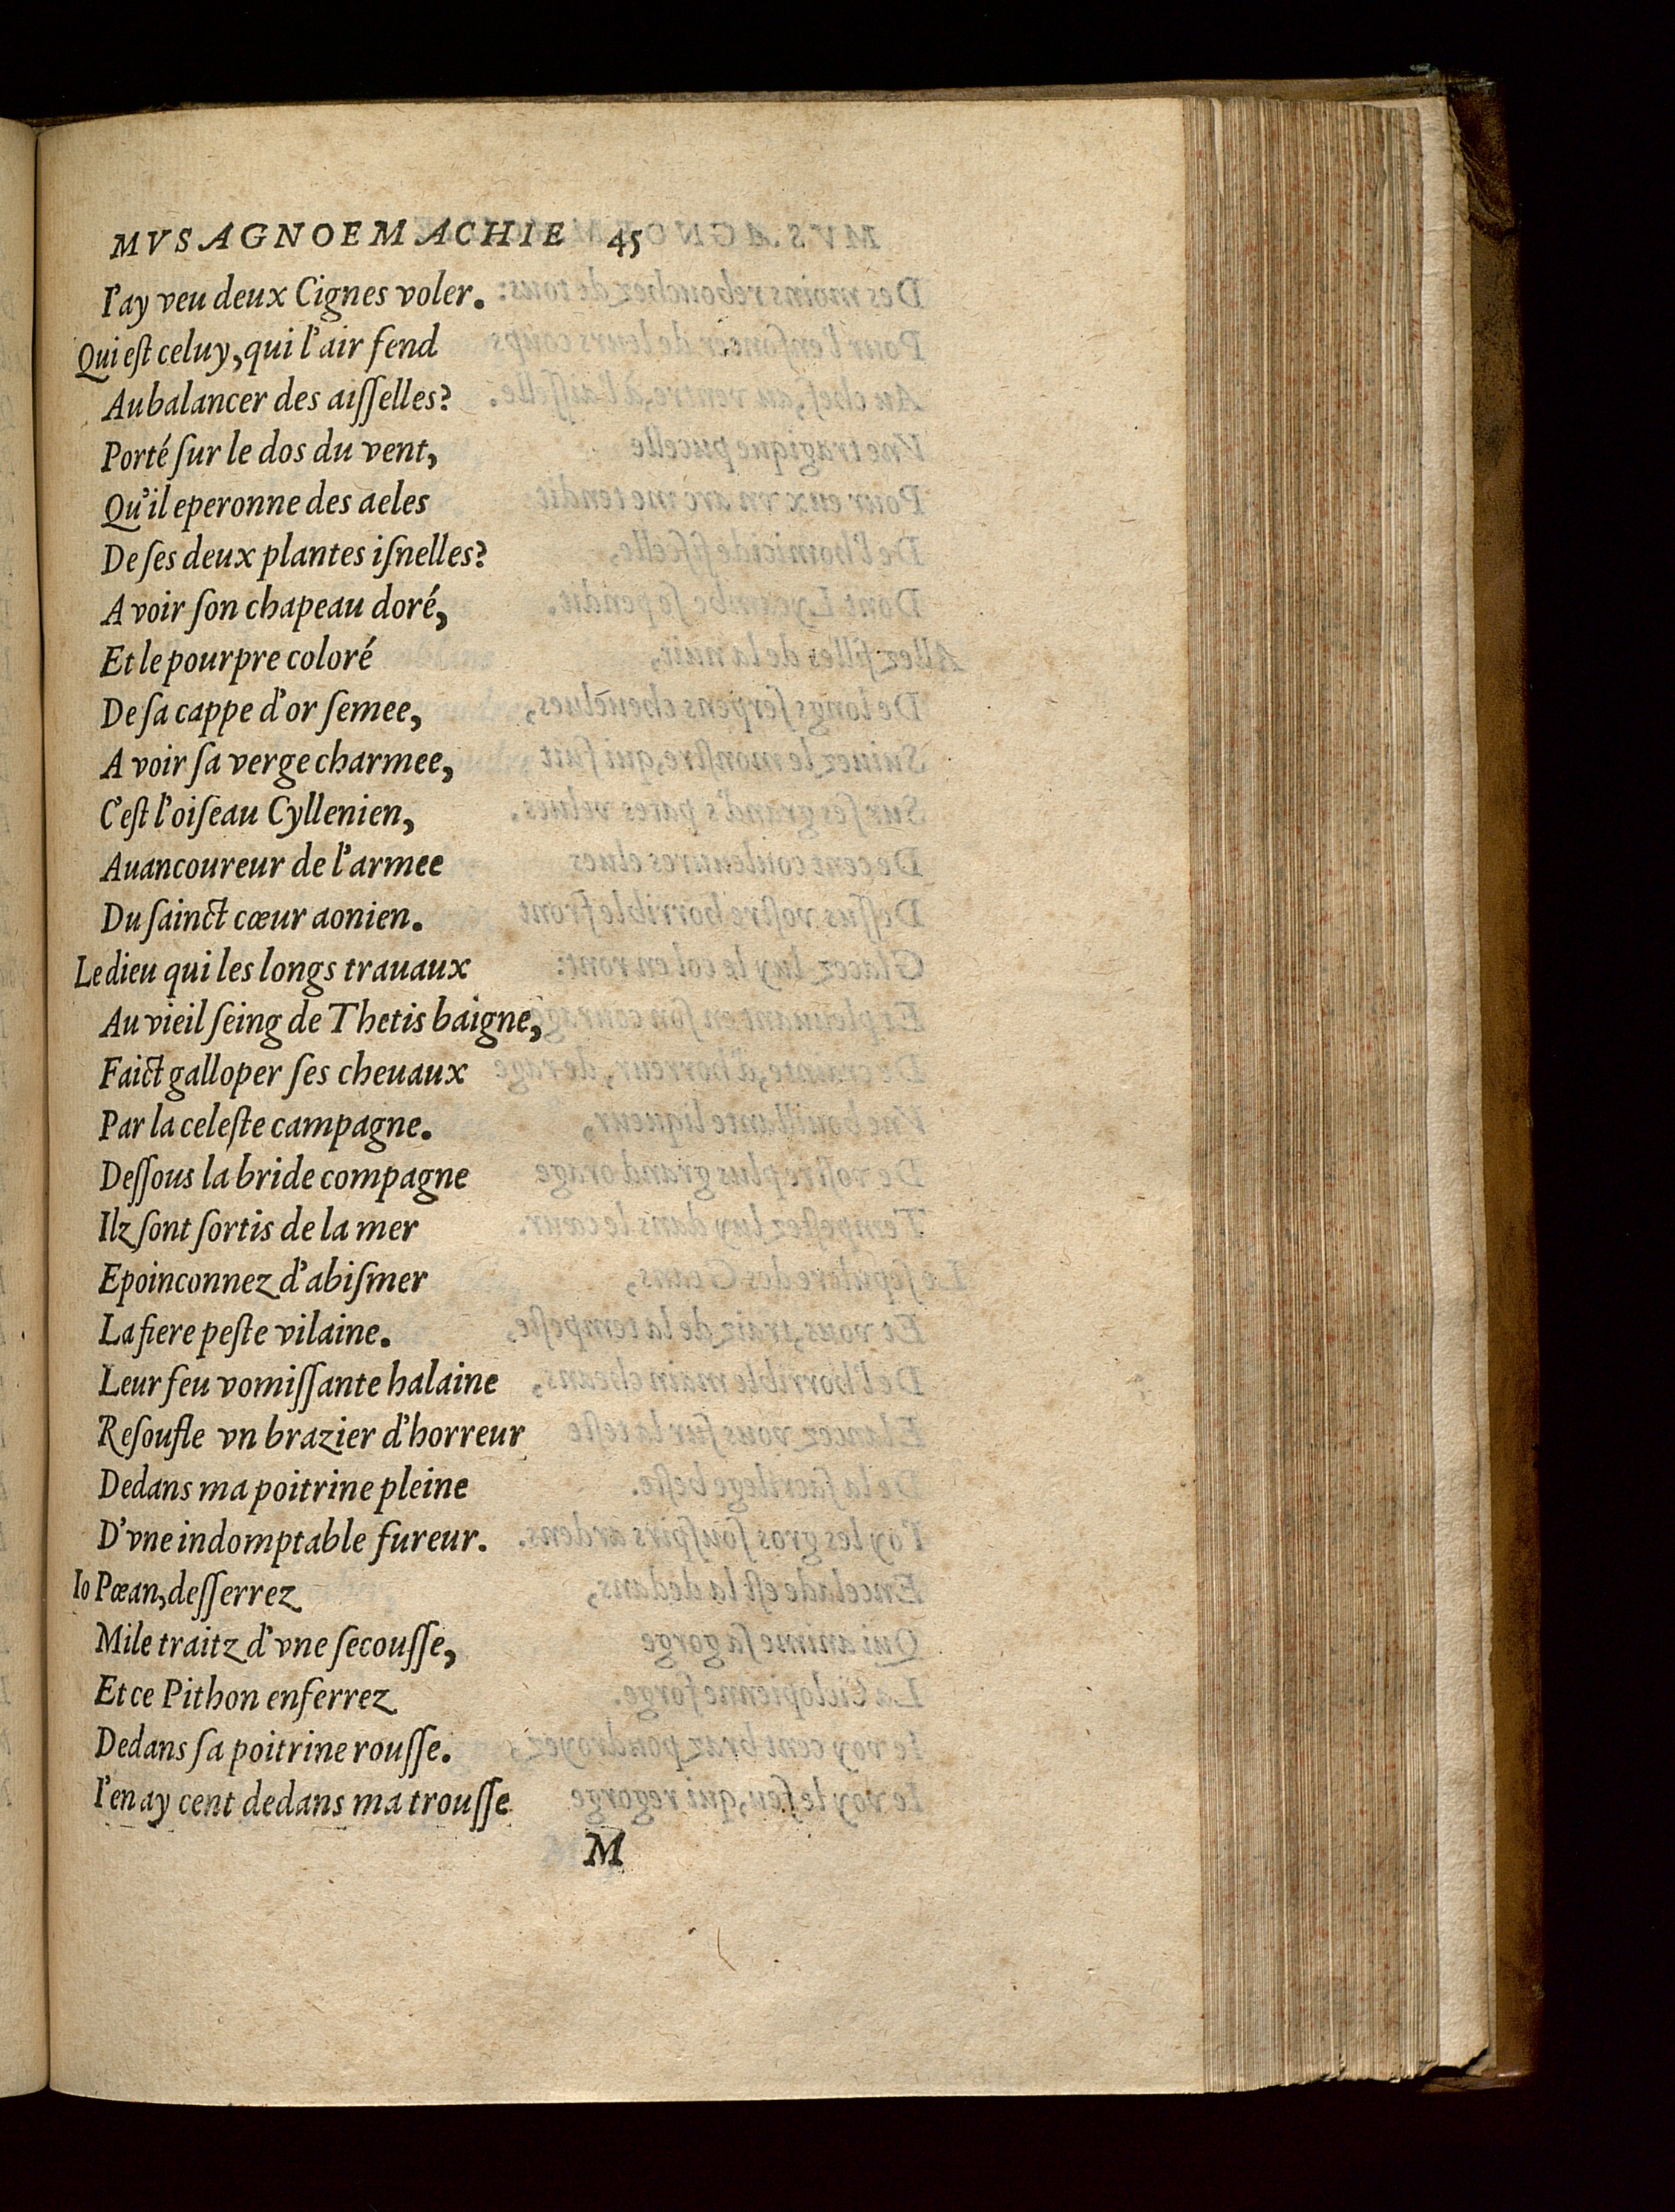 MVSAGNOEMACHIE 45
I'ay veu deux Cignes voler.
Qui eſt celuy, qui l'air fend
Au balancer des aiſſelles?
Porté ſur le dos du vent,
Qu'il eperonne des aeles
De ſes deux plantes iſnelles?
A voir ſon chapeau doré,
Et le pourpre coloré
De ſa cappe d'or ſemee,
A voir ſa verge charmee,
C'eſt l'oiſeau Cyllenien,
Auancoureur de l'armee
Du ſainct cœur aonien.
Le dieu qui les longs trauaux
Au vieil ſeing de Thetis baigne,
Faict galloper ſes cheuaux
Par la celeſte campagne.
Deſſous la bride compagne
Ilz ſont ſortis de la mer
Epoinconnez d'abiſmer
La fiere peſte vilaine.
Leur feu vomiſſante halaine
Reſoufle vn brazier d'horreur
Dedans ma poitrine pleine
D'vne indomptable fureur.
Io Pœan, deſſerrez
Mile traitz d'vne ſecouſſe,
Et ce Pithon enferrez
Dedans ſa poitrine rouſſe.
I'en ay cent dedans ma trouſſe
M